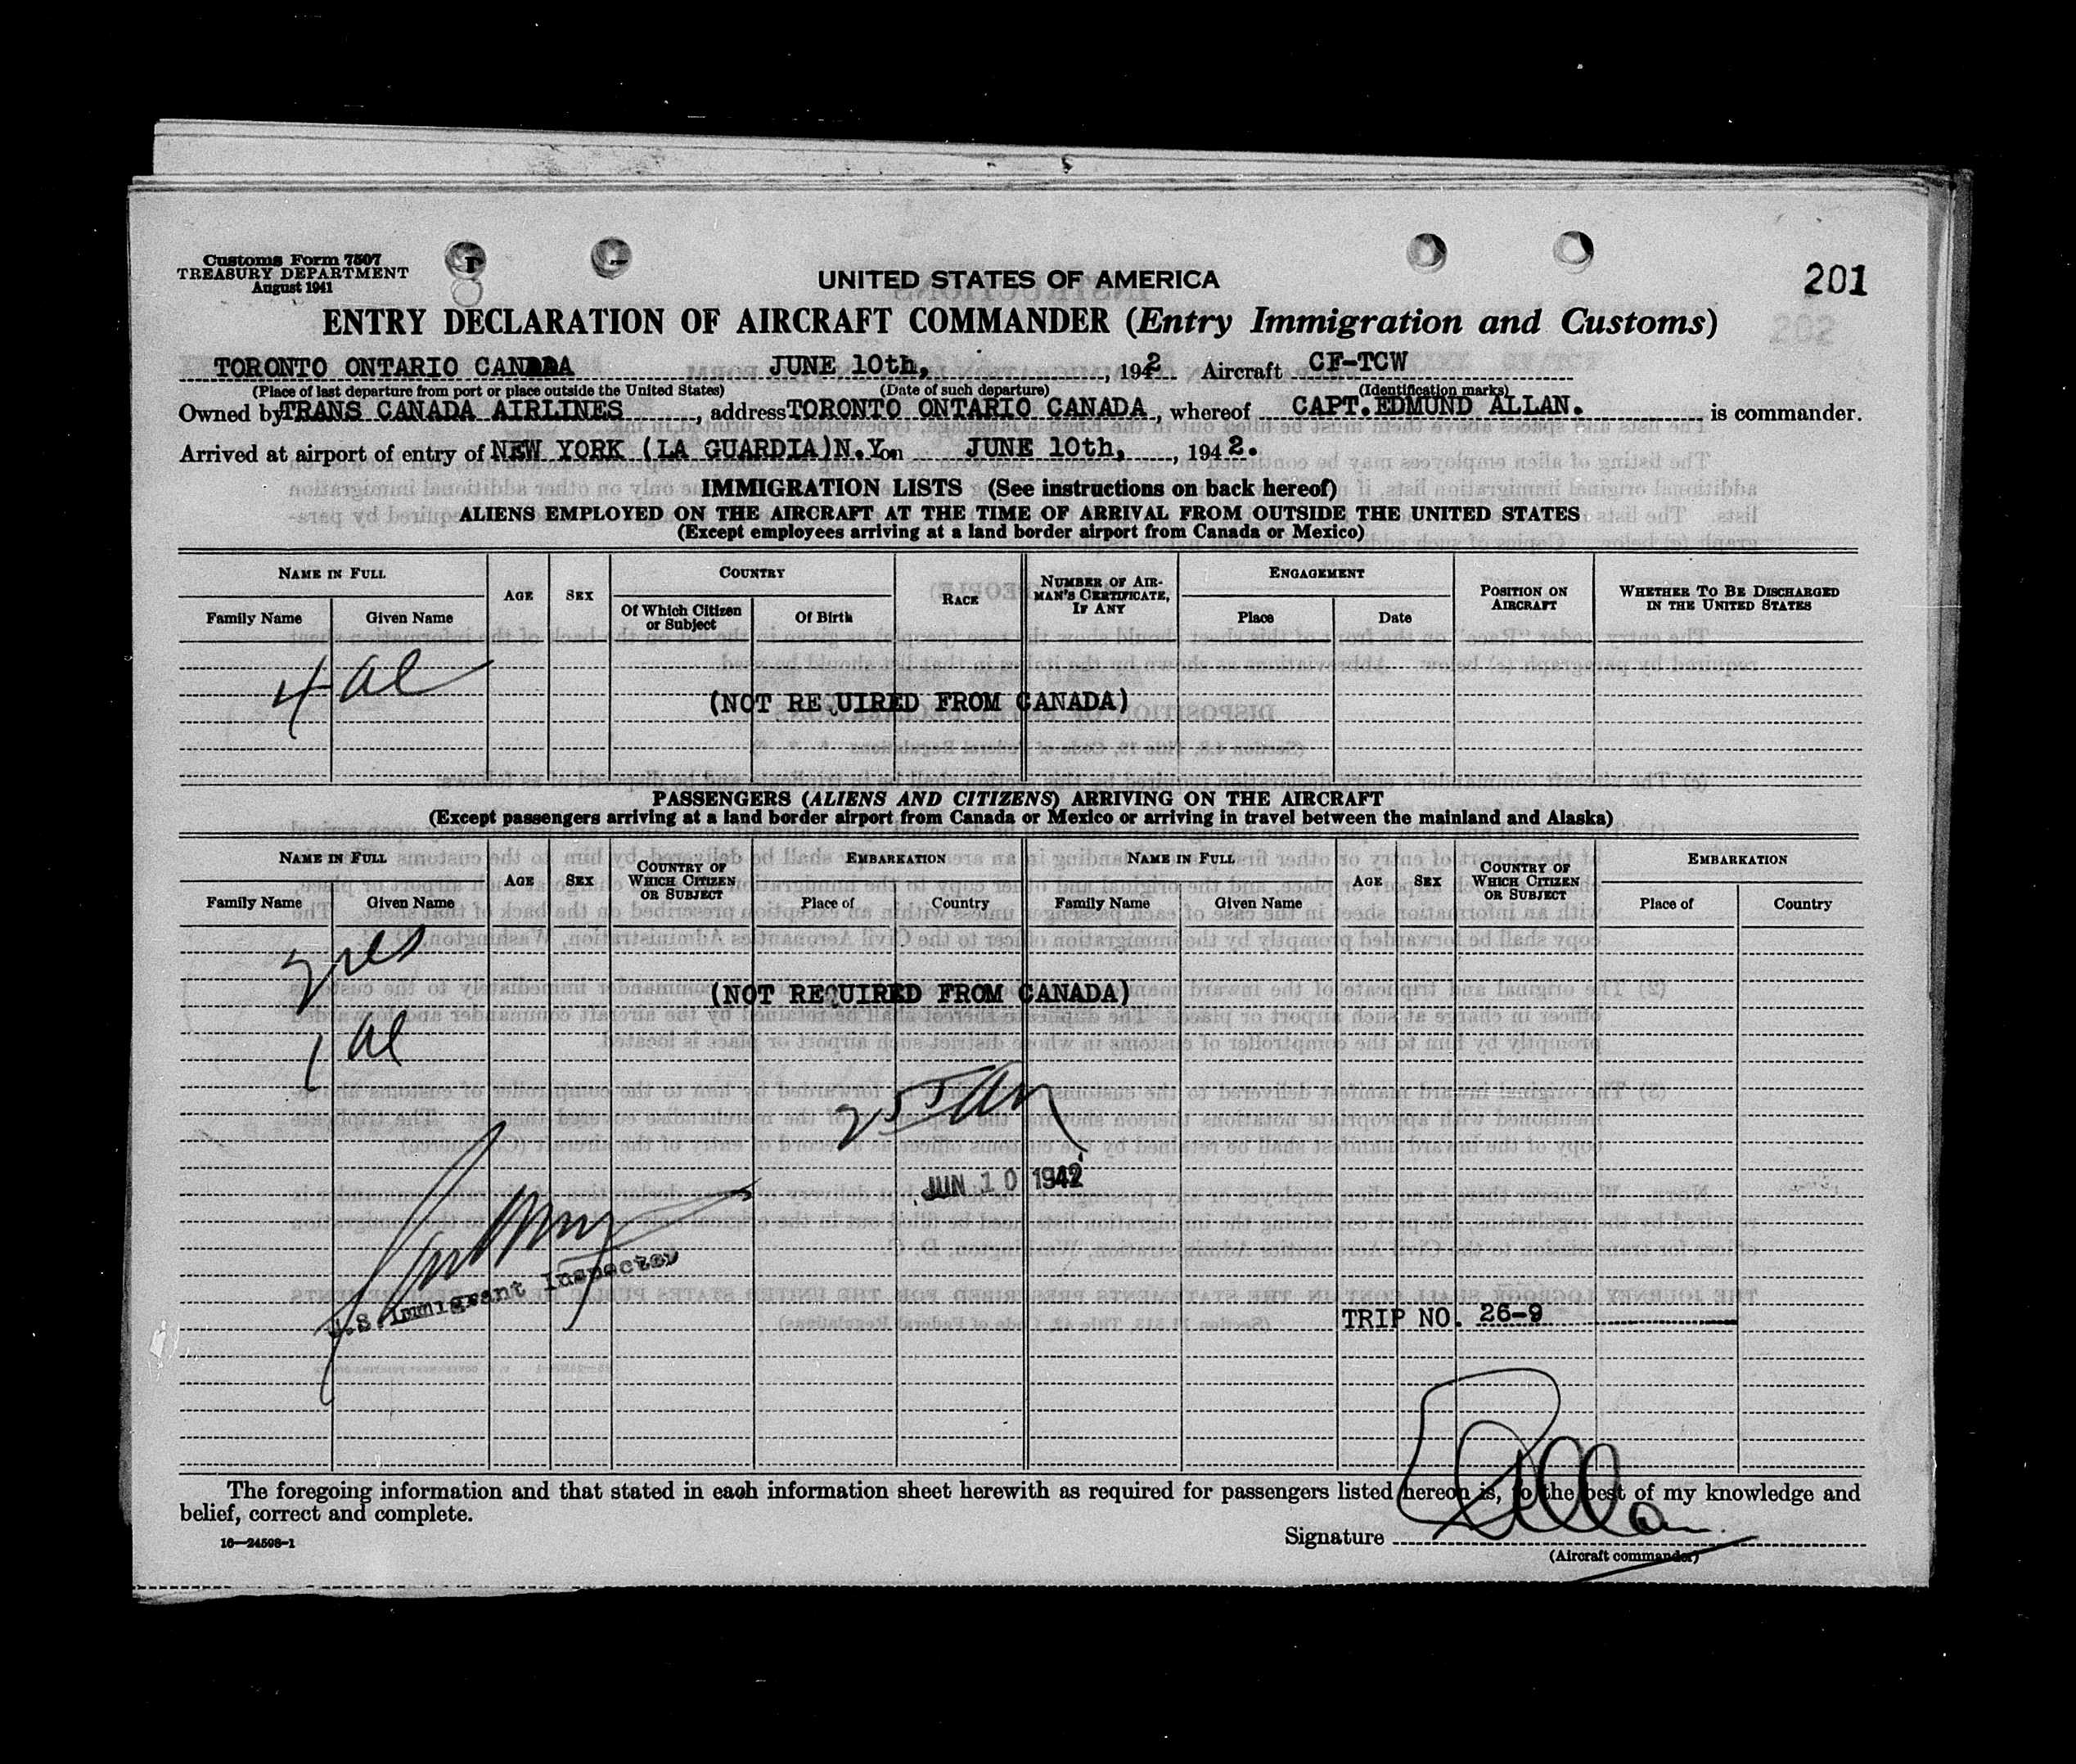 Customs Form 7507
TREASURY DEPARTMENT
August 1941
UNITED STATES OF AMERICA
201
ENTRY DECLARATION OF AIRCRAFT COMMANDER (Entry Immigration and Customs)
202
TORONTO ONTARIO CANADA JUNE 10th, , 1942 Aircraft CF-TCW
(Place of last departure from port or place outside the United States) (Date of such departure) (Identification marks)
Owned by TRANS CANADA AIRLINES , address TORONTO ONTARIO CANADA , whereof CAPT. EDMUND ALLAN. is commander.
Arrived at airport of entry of NEW YORK (LA GUARDIA) N.Y. on JUNE 10th, , 1942.
IMMIGRATION LISTS (See instructions on back hereof)
ALIENS EMPLOYED ON THE AIRCRAFT AT THE TIME OF ARRIVAL FROM OUTSIDE THE UNITED STATES
(Except employees arriving at a land border airport from Canada or Mexico)
NAME IN FULL AGE SEX COUNTRY RACE NUMBER OF AIRMAN'S CERTIFICATE, IF ANY ENGAGEMENT POSITION ON AIRCRAFT WHETHER TO BE DISCHARGED IN THE UNITED STATES
Family Name Given Name Of Which Citizen or Subject Of Birth Place Date
4 al
(NOT REQUIRED FROM CANADA)
PASSENGERS (ALIENS AND CITIZENS) ARRIVING ON THE AIRCRAFT
(Except passengers arriving at a land border airport from Canada or Mexico or arriving in travel between the mainland and Alaska)
NAME IN FULL AGE SEX COUNTRY OF WHICH CITIZEN OR SUBJECT EMBARKATION NAME IN FULL AGE SEX COUNTRY OF WHICH CITIZEN OR SUBJECT EMBARKATION
Family Name Given Name Place of Country Family Name Given Name Place of Country
(NOT REQUIRED FROM CANADA)
1 al
JUN 10 1942
U.S. Immigrant Inspector
TRIP NO. 26-9
The foregoing information and that stated in each information sheet herewith as required for passengers listed hereon is, to the best of my knowledge and
belief, correct and complete.
Signature
16—24598-1
(Aircraft commander)